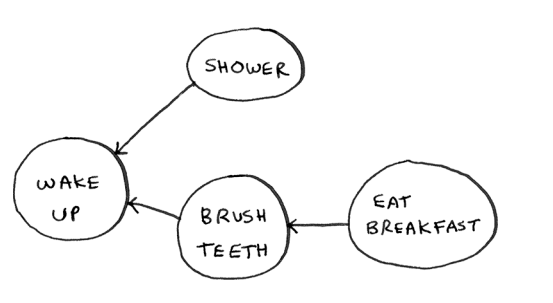 SHOWER
WAKE
UP
BRUSH
TEETH
EAT
BREAKFAST